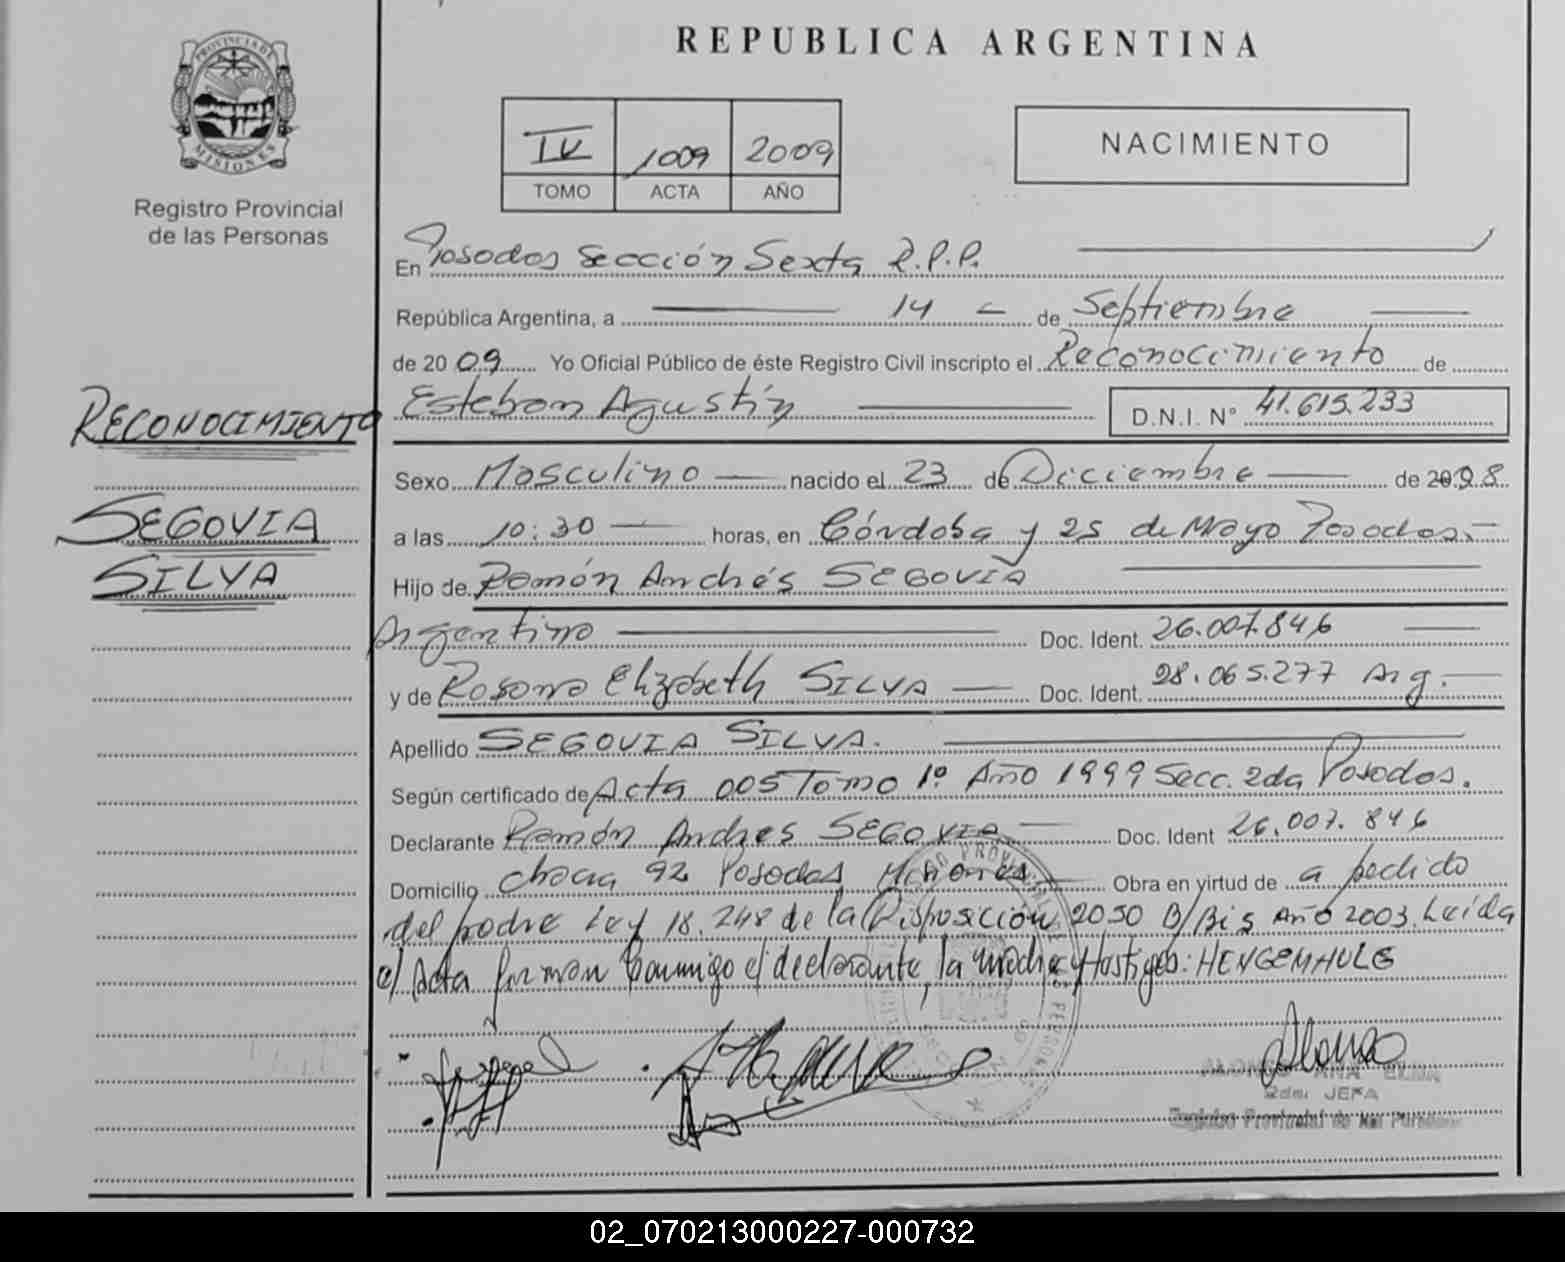 PROVINCIA DE
MISIONES
Registro Provincial
de las Personas
REPUBLICA ARGENTINA
IV 1009 2009
TOMO ACTA AÑO
NACIMIENTO
En Posadas Sección Sexta R.P.P.
República Argentina, a 14 de Septiembre
de 2009 Yo Oficial Público de éste Registro Civil inscripto el Reconocimiento de
RECONOCIMIENTO
Esteban Agustín D.N.I. N° 41.615.233
Sexo Masculino nacido el 23 de Diciembre de 1998
SEGOVIA
a las 10:30 horas, en Córdoba y 25 de Mayo Posadas.
SILVA
Hijo de Ramón Andrés SEGOVIA
Argentino Doc. Ident. 26.007.846
y de Rosana Elizabeth SILVA Doc. Ident. 28.065.277 Arg.
Apellido SEGOVIA SILVA.
Según certificado de Acta 005 Tomo 1° Año 1999 Secc. 2da Posadas.
Declarante Ramón Andres SEGOVIA Doc. Ident 26.007.846
Domicilio chacra 92 Posadas Misiones Obra en virtud de a pedido
del padre Ley 18.248 de la Disposición 2050 B/Bis Año 2003. Leída
el Acta firman conmigo el declarante, la madre y Hastiges: HENGEMHULE
ALONSO ANA ELBA
2da. JEFA
Registro Provincial de las Personas
02_070213000227-000732